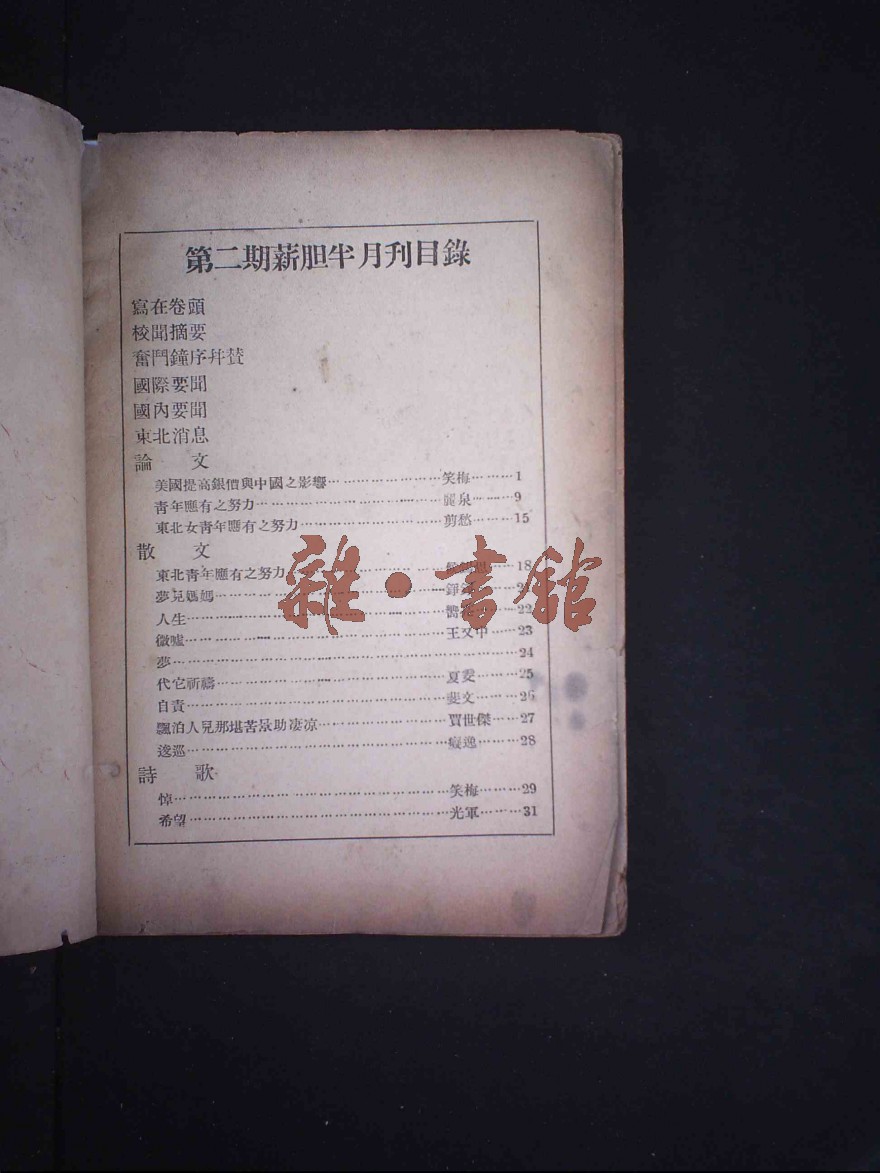 第二期薪胆半月刊目錄
寫在卷頭
校聞摘要
奮鬥鐘序幷贊
國際要聞
國內要聞
東北消息
論 文
美國提高銀價與中國之影響……笑梅……1
靑年應有之努力……麗泉……9
東北女靑年應有之努力……剪愁……15
散 文
東北靑年應有之努力……18
夢兒媽媽……21
人生……22
微噓……王又中……23
夢……24
代它祈禱……夏雯……25
自責……斐文……26
飄泊人兒那堪苦景助凄凉……賈世傑……27
逡巡……癡逸……28
詩 歌
悼……笑梅……29
希望……光軍……31
雜·書館